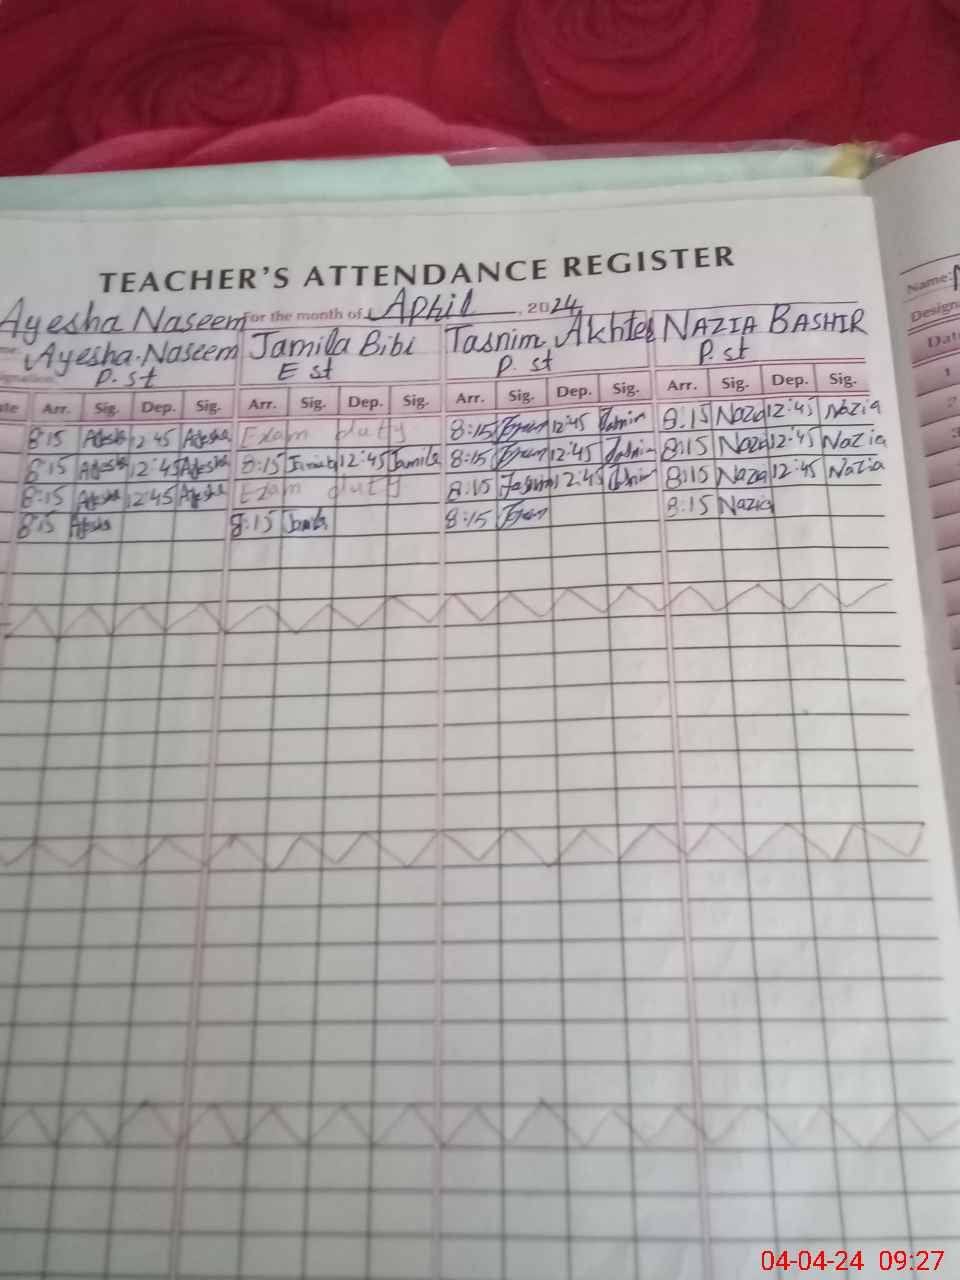 TEACHER'S ATTENDANCE REGISTER
Ayesha Naseem for the month of April, 2024
Ayesha Naseem Jamila Bibi Tasnim Akhter NAZIA BASHIR
P.st E st P.st P.st
Arr. Sig. Dep. Sig. Arr. Sig. Dep. Sig. Arr. Sig. Dep. Sig. Arr. Sig. Dep. Sig.
8:15 Ayesha 12:45 Ayesha Exam duty 8:15 12:45 Tasnim 8:15 Nazia 12:45 Nazia
8:15 Ayesha 12:45 Ayesha 8:15 Jamila 12:45 Jamila 8:15 12:45 Tasnim 8:15 Nazia 12:45 Nazia
8:15 Ayesha 12:45 Ayesha Exam duty 8:15 Tasnim 12:45 Tasnim 8:15 Nazia 12:45 Nazia
8:15 Ayesha 8:15 Jamila 8:15 8:15 Nazia
Name:
1
04-04-24 09:27